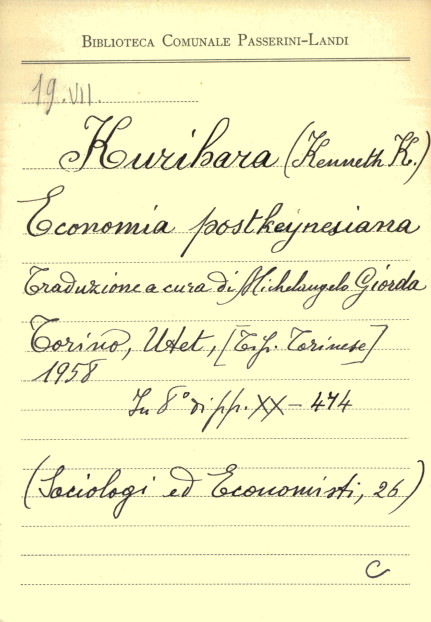 BIBLIOTECA COMUNALE PASSERINI-LANDI
19.VII.
Kurihara (Kenneth K.)
Economia postkeynesiana
Traduzione a cura di Michelangelo Giorda
Torino, Utet, [Tip. Torinese]
1958
In 8° di pp. XX - 474
(Sociologi ed Economisti, 26)
C